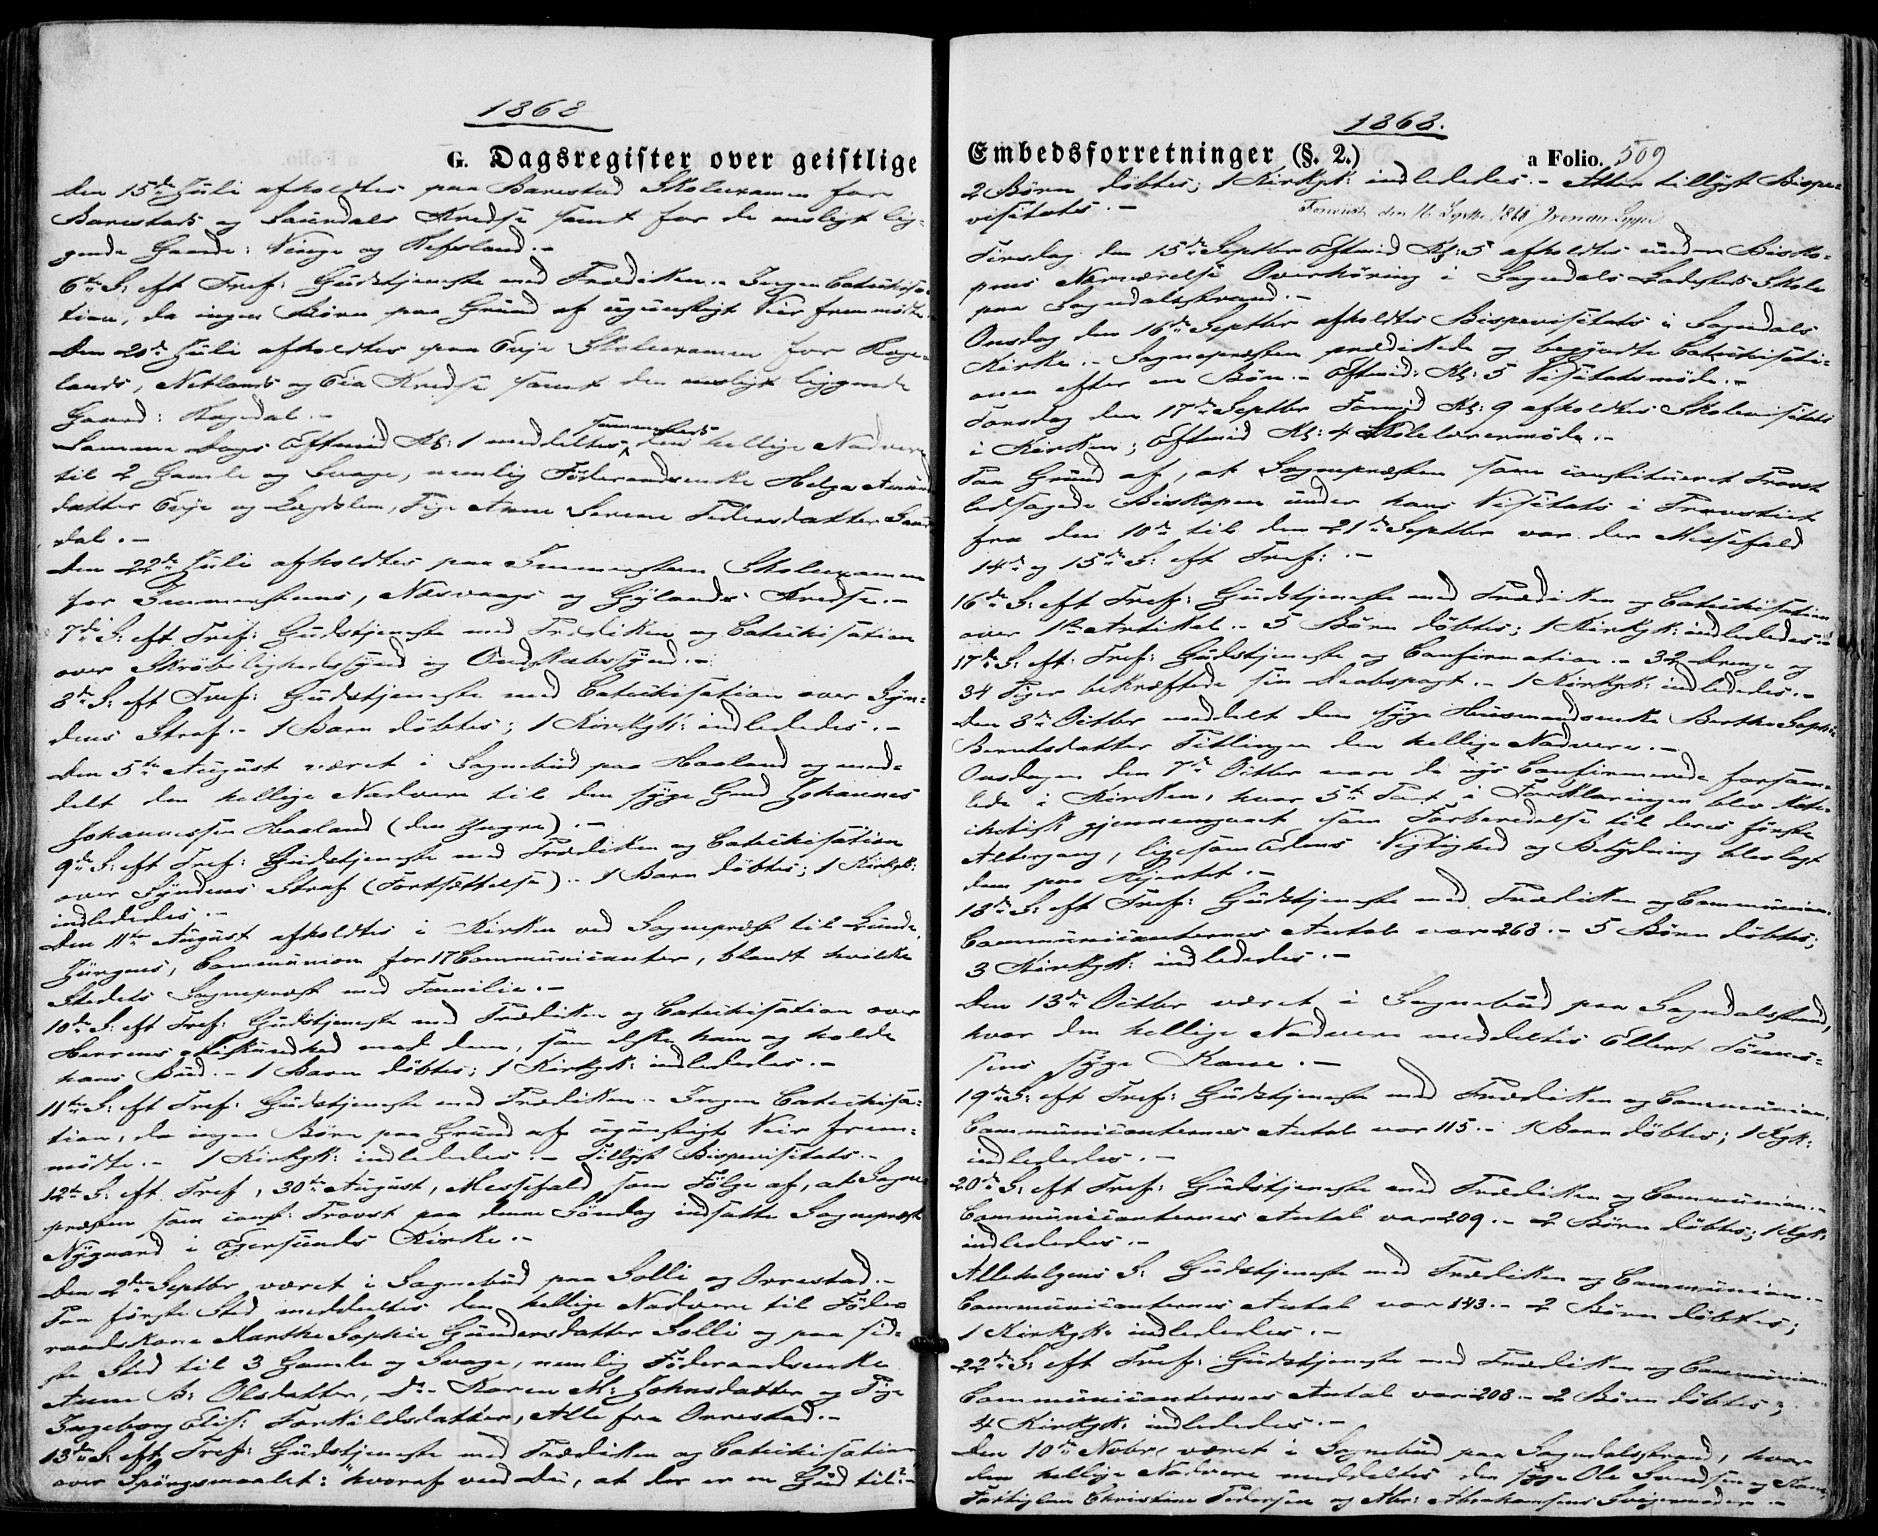 1868
G. Dagsregister over geistlige
Den 15de Juli afholdtes paa Barestad Skoleexamen for
Barestads og Saurdals Kredse samt for de ensligt lig-
gende Gaarde: Vinge og Refsland.-
6te S: eft Tref: Gudstjeneste med Prædiken.- Ingen Catechisa-
tion, da ingen Børn paa Grund af ugunstigt Veir fremmødte.
Den 20de Juli afholdtes paa Evje Skoleexamen for Rage-
lands, Netlands og Eia Kredse samt den ensligt liggende
Gaard: Røgedal.-
Samme Dags Eftmid Kl: 1 meddeltes sammesteds den hellige Nadvere
til 2 Gamle og Svage, nemlig Föderaadsenke Helga Amunds
datter Evje og Lægdslem, Pige Anne Serene Pedersdatter Saur-
dal.-
Den 22de Juli afholdtes paa Immerstein Skoleexamen
for Immersteins, Næsvaags og Gylands Kredse.-
7de S: eft Tref: Gudstjeneste med Prædiken og Catechisation
over Skröbelighedssynd og Ondskabssynd.-
8de S: eft Tref: Gudstjeneste med Catechisation over Syn-
dens Straf.- 1 Barn döbtes; 1 Kirkegk: indlededes.-
Den 5te August været i Sognebud paa Haaland og med-
delt den hellige Nadvere til den syge Gmd Johannes
Johannessen Haaland (den Yngre).-
9de S: eft Tref: Gudstjeneste med Prædiken og Catechisation
over Syndens Straf (Fortsættelse).- 1 Barn döbtes; 1 Kirkegk:
indlededes.-
Den 11te August afholdtes i Kirken ved Sognepræst til Lunde,
Jürgens, Communion for 17 Communicanter, blandt hvilke
Stedets Sognepræst med Familie.-
10de S: eft Tref: Gudstjeneste med Prædiken og Catechisation over
Herrens Miskundhed mod dem, som elske ham og holde
hans Bud.- 1 Barn döbtes; 1 Kirkegk: indlededes.-
11te S: eft Tref: Gudstjeneste med Prædiken.- Ingen Catechisa-
tion, da ingen Börn paa Grund af ugunstigt Veir frem-
mödte.- 1 Kirkegk: indlededes.- Tillyst Bispevisitats.-
12te S: eft Tref, 30te August, Messefald som Fölge af, at Sogne-
præsten som const: Provst paa denne Söndag indsatte Sognepræst
Nygaard i Egersunds Kirke.-
Den 2den Septbr været i Sognebud paa Solli og Orrestad.-
Paa förste Sted meddeltes den hellige Nadvere til Föde-
raadskone Marthe Sophie Gundersdatter Solli og paa sid-
ste Sted til 3 Gamle og Svage, nemlig Föderaadsenke
Anne B: Olsdatter, Do- Karen M: Johnsdatter og Pige
Ingeborg Elis: Torkildsdatter, Alle fra Orrestad.-
13de S: eft Tref: Gudstjeneste med Prædiken og Catechisation
over Spörgsmaalet: hvoraf veed du, at der er en Gud til?-
1868.
Embedsforretninger (§. 2.)
a Folio. 509
2 Börn döbtes; 1 Kirkegk: indlededes.- Atter tillyst Bispe-
visitats.-
den 16 Septbr 1868
Tirsdag den 15de Septbr Eftmid Kl: 5 afholdtes under Bisko-
pens Nærværelse Overhöring i Sogndals Ladesteds Skole
paa Sogndalsstrand.-
Onsdag den 16de Septbr afholdtes Bispevisitats i Sogndals
Kirke.- Sognepræsten prædikede og begyndte Catechisati-
onen efter en Bön.- Eftmid: Kl: 5 Visitatsmöde.-
Torsdag den 17de Septbr Formid Kl: 9 afholdtes Skolevisitats
i Kirken; Eftmid Kl: 4 Skolelærermöde.-
Paa Grund af, at Sognepræsten som constitueret Provst
ledsagede Biskopen under hans Visitats i Provstiet
fra den 10de til den 21de Septbr var der Messefald
14de og 15de S: eft Tref:.-
16de S: eft Tref: Gudstjeneste med Prædiken og Catechisation
over 1ste Artikel.- 5 Börn döbtes; 1 Kirkegk: indlededes.-
17de S: eft: Tref: Gudstjeneste og Confirmation.- 32 Drenge og
34 Piger bekræftede sin Daabspagt.- 1 Kirkegk: indlededes.-
Den 3de Octbr meddelt den syge Huusmandsenke Berthe Sophie
Berntsdatter Titlingen den hellige Nadvere.-
Onsdagen den 7de Octbr vare de nys Confirmerede forsam-
lede i Kirken, hvor 5te Part i Forklaringen blev kate-
chetisk gjennemgaaet som Forberedelse til deres förste
Altergang, ligesom Edens Vigtighed og Betydning blev lagt
dem paa Hjertet.-
18de S: eft Tref: Gudstjeneste med Prædiken og Communion.
Communicanternes Antal var 268.- 5 Börn döbtes;
3 Kirkegk: indlededes.-
Den 13de Octbr været i Sognebud paa Sogndalsstrand,
hvor den hellige Nadvere meddeltes Ellert Tönnes-
sens syge Kone.-
19de S: eft Tref: Gudstjeneste med Prædiken og Communion.
Communicanternes Antal var 115.- 1 Barn döbtes; 1 Kgk:
indlededes.-
20de S: eft Tref: Gudstjeneste med Prædiken og Communion.-
Communicanternes Antal var 209.- 2 Börn döbtes; 1 Kgk:
indlededes.-
Allehelgens S: Gudstjeneste med Prædiken og Communion.-
Communicanternes Antal var 143.- 2 Börn döbtes;
1 Kirkegk: indlededes.-
22de S: eft Tref: Gudstjeneste med Prædiken og Communion.
Communicanternes Antal var 208.- 2 Börn döbtes;
4 Kirkegk: indlededes.-
Den 10de Novbr, været i Sognebud paa Sogndalsstrand, hvor
den hellige Nadvere meddeltes den syge Ole Svendsen og Kone,
Fattiglem Christine Pedersen og Abr: Abrahamsens Svigermoder.-